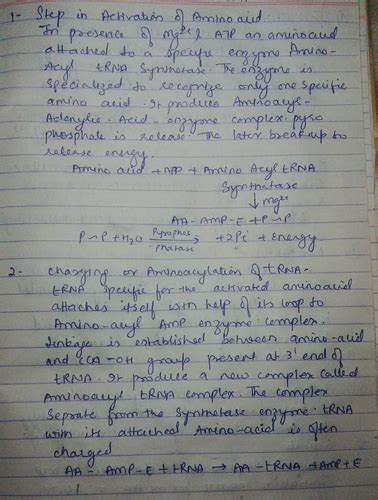 1- Step in Activation of Amino acid
In presence of Mg2+ & ATP an aminoacid
attached to a specific enzyme Amino-
Acyl tRNA Synthetase. The enzyme is
specialized to recognize only one specific
amino acid. It produce Aminoacyl-
Adenylic-Acid-enzyme complex. pyro
phosphate is release. The later breakup to
release energy.
Amino acid + ATP + Amino Acyl tRNA
Synthetase
↓ Mg2+
AA-AMP-E + P~P
P~P + H2O Pyrophos-phatase → +2Pi + Energy.
2- Charging or Aminoacylation of tRNA-
tRNA specific for the activated aminoacid
attaches itself with help of its loop to
Amino-acyl AMP enzyme complex.
linkage is established between amino-acid
and CCA-OH group present at 3' end of
tRNA. It produce a new complex called
Aminoacyl tRNA complex. The complex
Seprate from the synthetase enzyme. tRNA
with its attached Amino-acid is often
charged
AA- AMP-E + tRNA → AA-tRNA + AMP + E